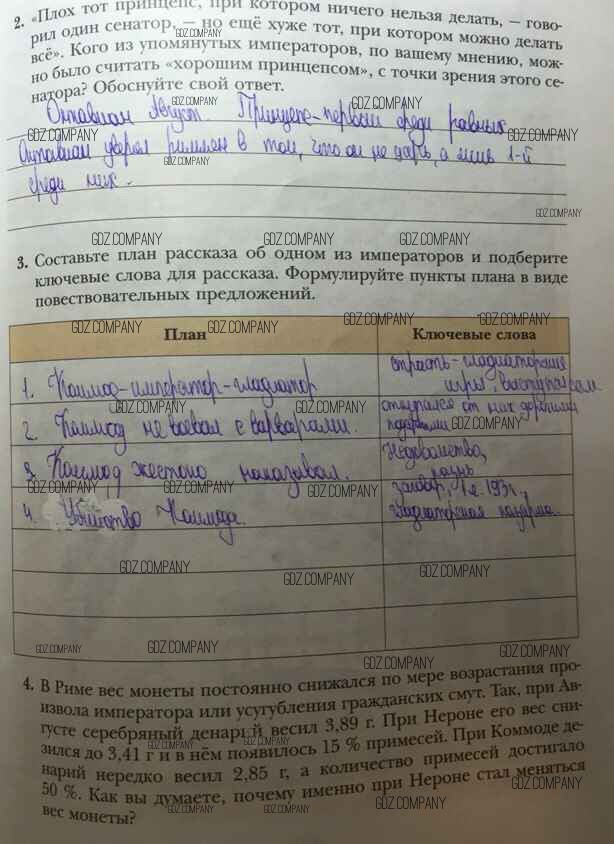 2. «Плох тот принцепс, при котором ничего нельзя делать, – гово-
рил один сенатор, – но ещё хуже тот, при котором можно делать
всё». Кого из упомянутых императоров, по вашему мнению, мож-
но было считать «хорошим принцепсом», с точки зрения этого се-
натора? Обоснуйте свой ответ.
Октавиан Август. Принцепс-первый среди равных.
Октавиан уверял римлян в том, что он не царь, а лишь 1-й
среди них.
3. Составьте план рассказа об одном из императоров и подберите
ключевые слова для рассказа. Формулируйте пункты плана в виде
повествовательных предложений.
План Ключевые слова
1. Коммод-император-гладиатор страсть-гладиаторские
игры, выступал сам
2. Коммод не воевал с варварами. откупался от них дорогими
подарками
3 Коммод жестоко наказывал. Недовольства,
казнь
4. Убийство Коммода. заговор, 1 я. 193г.,
гладиаторская казарма.
4. В Риме вес монеты постоянно снижался по мере возрастания про-
извола императора или усугубления гражданских смут. Так, при Ав-
густе серебряный денарий весил 3,89 г. При Нероне его вес сни-
зился до 3,41 г и в нём появилось 15 % примесей. При Коммоде де-
нарий нередко весил 2,85 г, а количество примесей достигало
50 %. Как вы думаете, почему именно при Нероне стал меняться
вес монеты?
GDZ.COMPANY